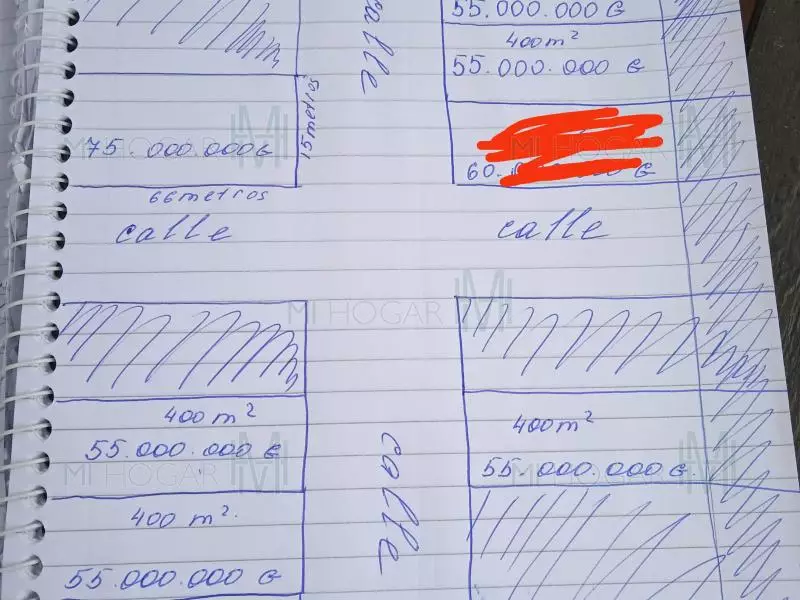 55.000.000 G
400 m²
55.000.000 G
calle
15 metros
75.000.000 G
60.
G
66 metros
calle
calle
MI HOGAR
MI HOGAR
MI HOGAR
400 m²
55.000.000 G
400 m²
55.000.000 G
calle
MI HOGAR
MI HOGAR
400 m².
55.000.000 G